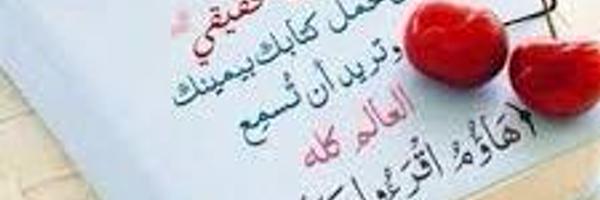 حقيقي
تحمل كتابك بيمينك
وتريد أن تُسمِع
العالم كله
﴿هَاؤُمُ اقْرَءُوا